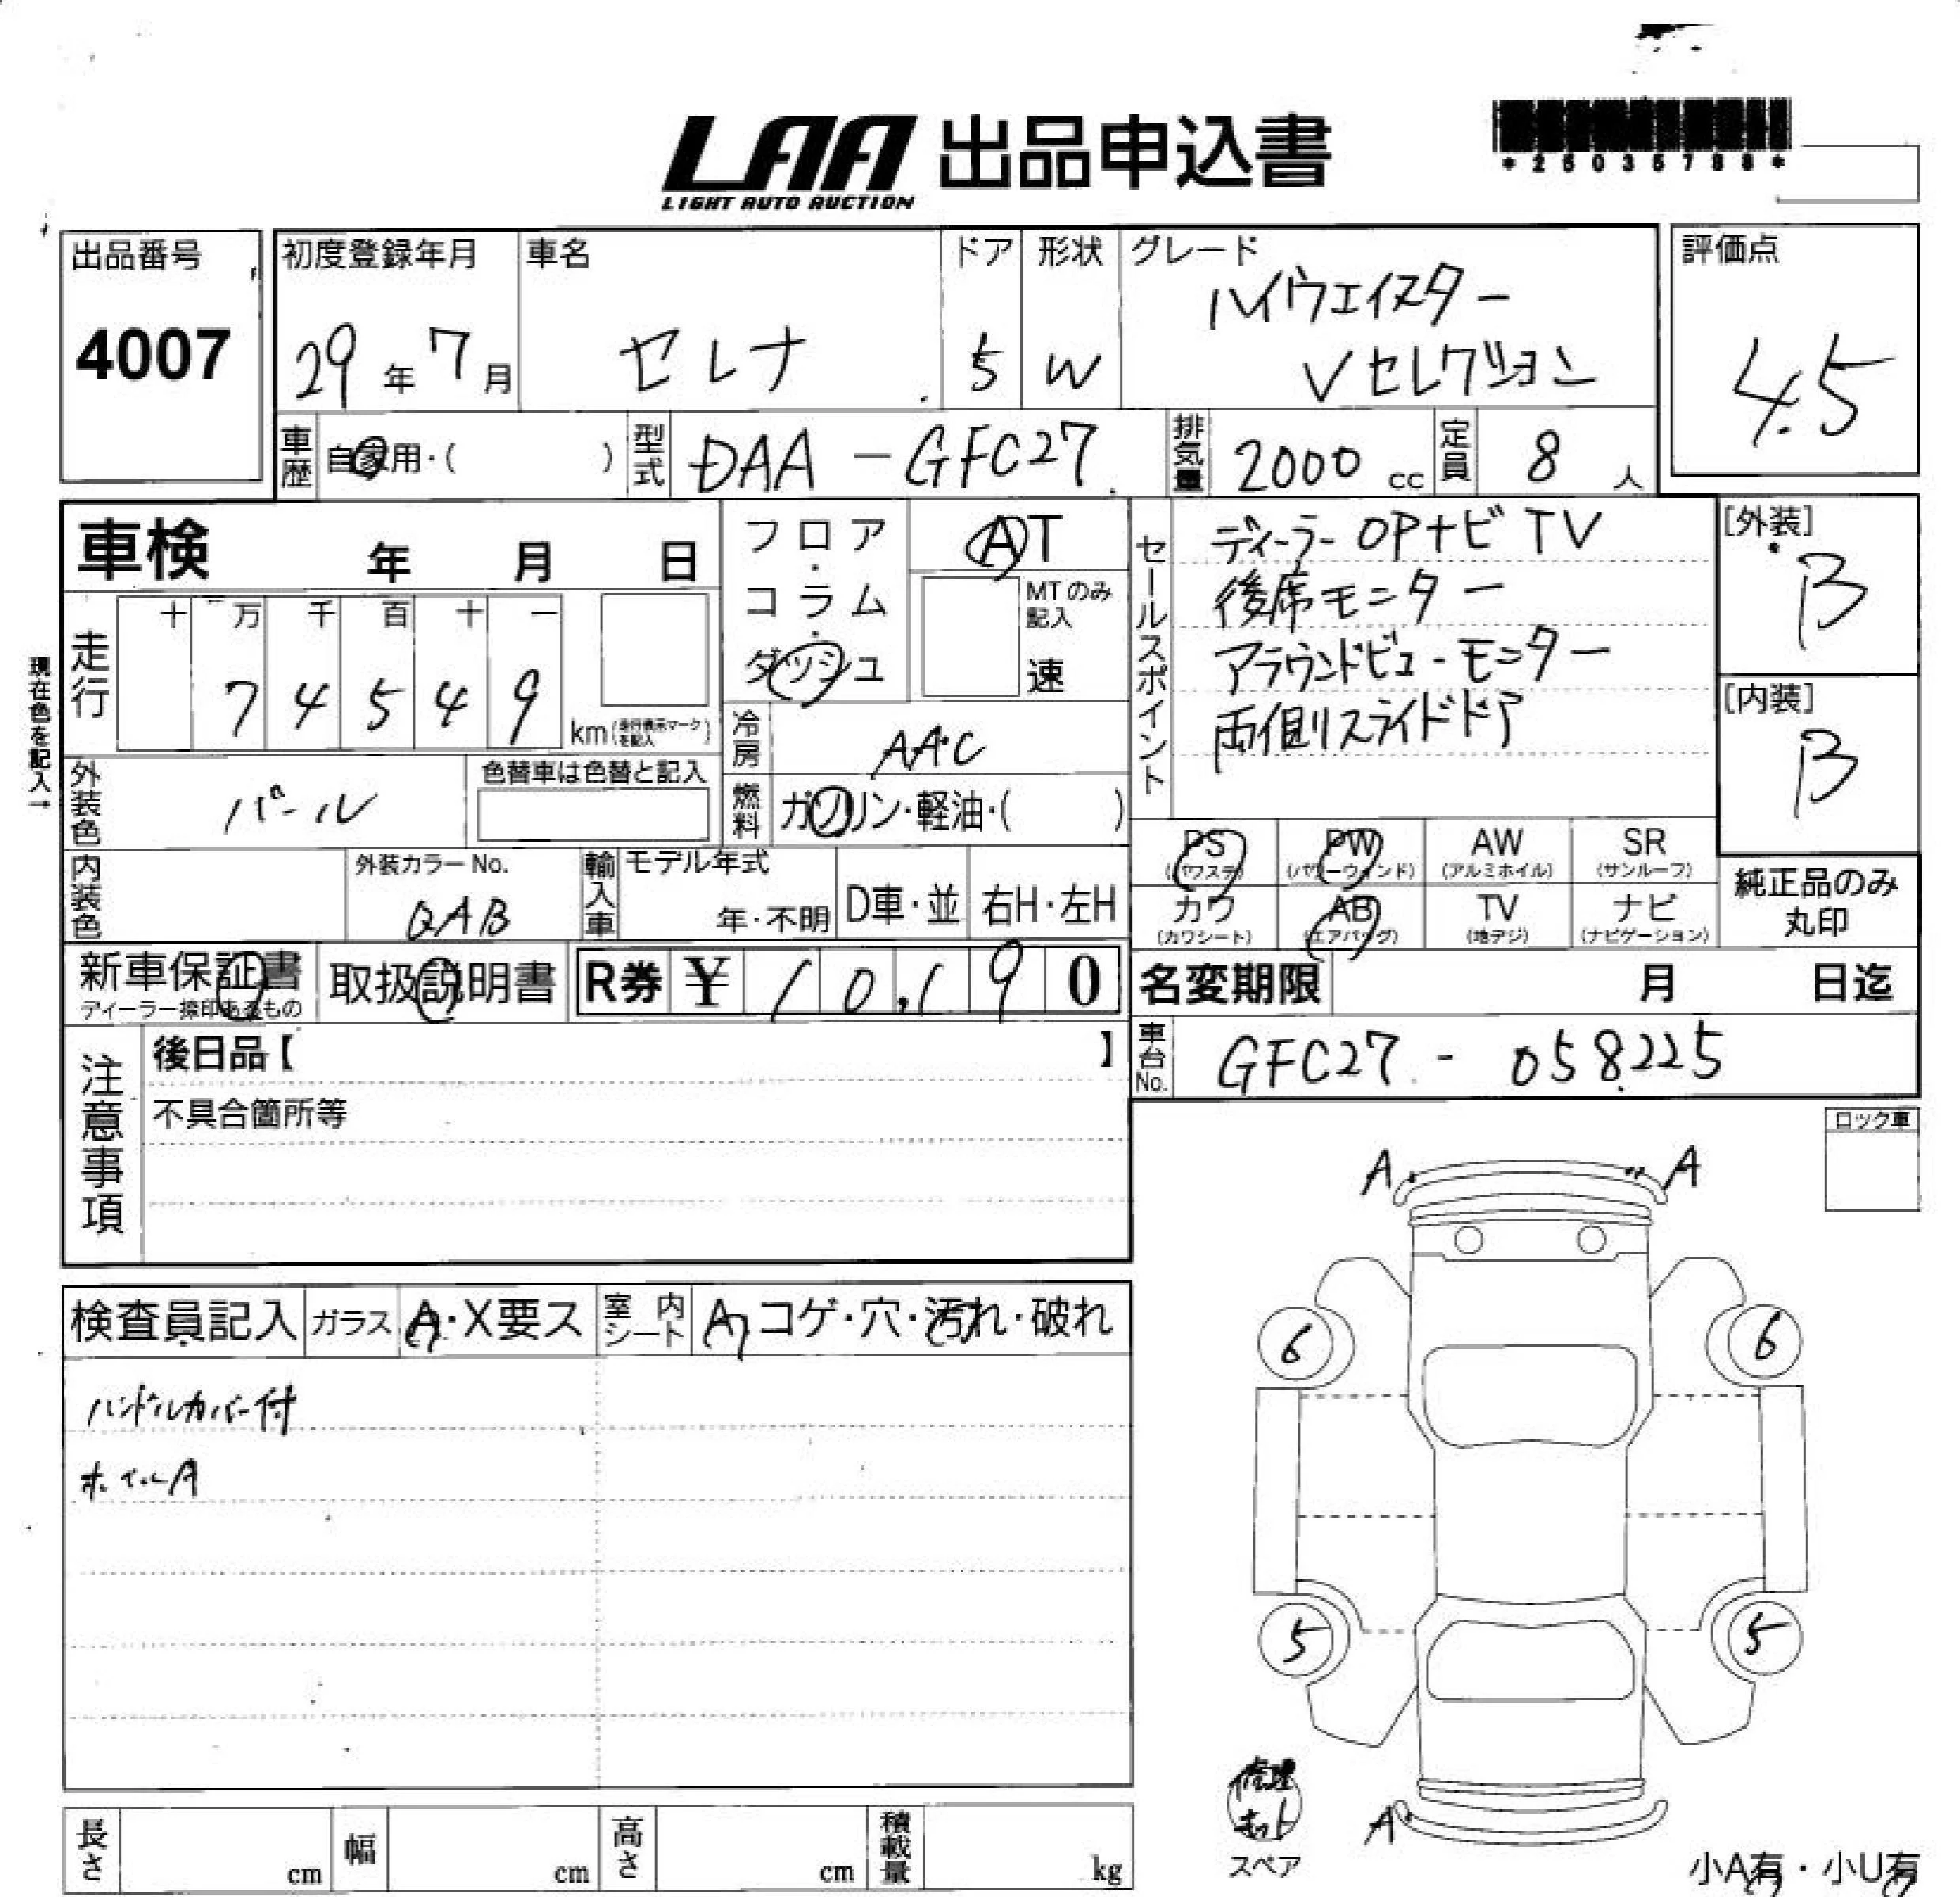 LAA 出品申込書
LIGHT AUTO AUCTION
*26035788*
出品番号
4007
初度登録年月
29年7月
車名
セレナ
ドア
5
形状
W
グレード
ハイウェイスター
Vセレクション
評価点
4.5
車歴
自家用・( )
型式
DAA-GFC27
排気量
2000cc
定員
8人
車検 年 月 日
フロア・
コラム・
ダッシュ
AT
MTのみ
記入
速
現在色を記入→
走行
十 万 千 百 十 一
7 4 5 4 9
km(走行表示マークを記入)
冷房
AAC
燃料
ガソリン・軽油・( )
外装色
パール
色替車は色替と記入
内装色
外装カラーNo.
QAB
輸入車
モデル年式
年・不明
D車・並
右H・左H
セールスポイント
ディーラーOPナビTV
後席モニター
アラウンドビューモニター
両側スライドドア
[外装]
B
[内装]
B
PS (パワステ)
PW (パワーウィンド)
AW (アルミホイル)
SR (サンルーフ)
カワ (カワシート)
AB (エアバッグ)
TV (地デジ)
ナビ (ナビゲーション)
純正品のみ
丸印
新車保証書
ディーラー捺印あるもの
取扱説明書
R券 ¥ 10,190
名変期限 月 日迄
車台No.
GFC27-058225
注意事項
後日品【 】
不具合箇所等
ロック車
検査員記入
ガラス
A・X要ス
室内
シート
A コゲ・穴・汚れ・破れ
ハンドルカバー付
ホイールA
A
A
6
6
5
5
A
修理
キット
スペア
小A有・小U有
長さ cm
幅 cm
高さ cm
積載量 kg